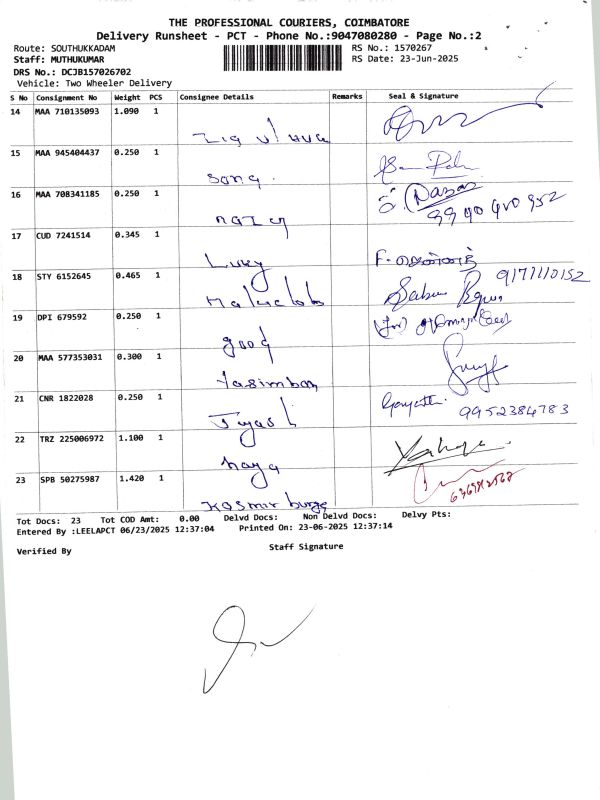 THE PROFESSIONAL COURIERS, COIMBATORE
Delivery Runsheet - PCT - Phone No.:9047080280 - Page No.:2
Route: SOUTHUKKADAM
RS No.: 1570267
Staff: MUTHUKUMAR
RS Date: 23-Jun-2025
DRS No.: DCJB157026702
Vehicle: Two Wheeler Delivery
S No Consignment No Weight PCS Consignee Details Remarks Seal & Signature
14 MAA 710135093 1.090 1
15 MAA 945404437 0.250 1
song.
16 MAA 708341185 0.250 1
Nazar
9940400952
17 CUD 7241514 0.345 1
18 STY 6152645 0.465 1
9171110152
19 DPI 679592 0.250 1
good
20 MAA 577353031 0.300 1
21 CNR 1822028 0.250 1
Gayathri 9952384783
22 TRZ 225006972 1.100 1
naya
23 SPB 50275987 1.420 1
Tot Docs: 23 Tot COD Amt: 0.00 Delvd Docs: Non Delvd Docs: Delvy Pts:
Entered By :LEELAPCT 06/23/2025 12:37:04 Printed On: 23-06-2025 12:37:14
Verified By Staff Signature